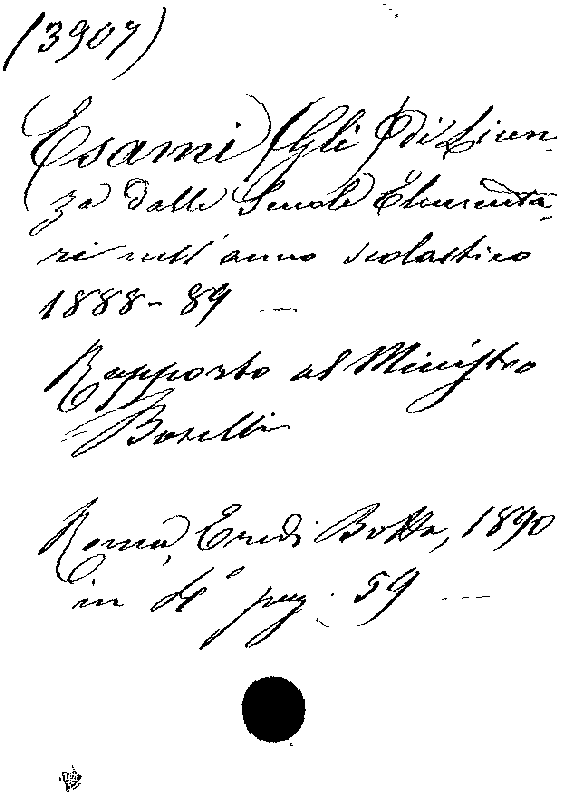 (3907)
Esami (Gli) di Licen-
za dalle Scuole Elementa-
ri nell' anno scolastico
1888-89 —
Rapporto al Ministro
Boselli
Roma, Eredi Botta, 1890
in 4° pag. 59 —